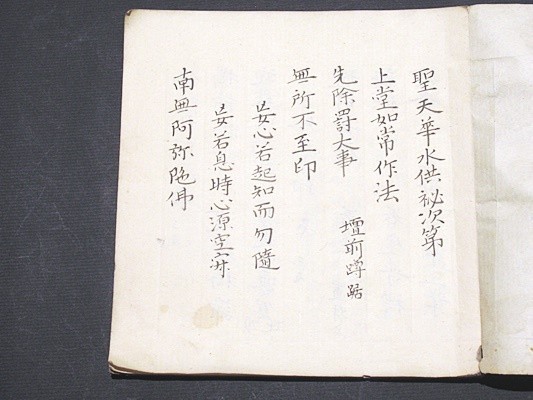 聖天華水供祕次第
上堂如常作法
先除罸大事 壇前蹲踞
無所不至印
妄心若起知而勿隨
妄若息時心源空寂
南無阿弥陁佛